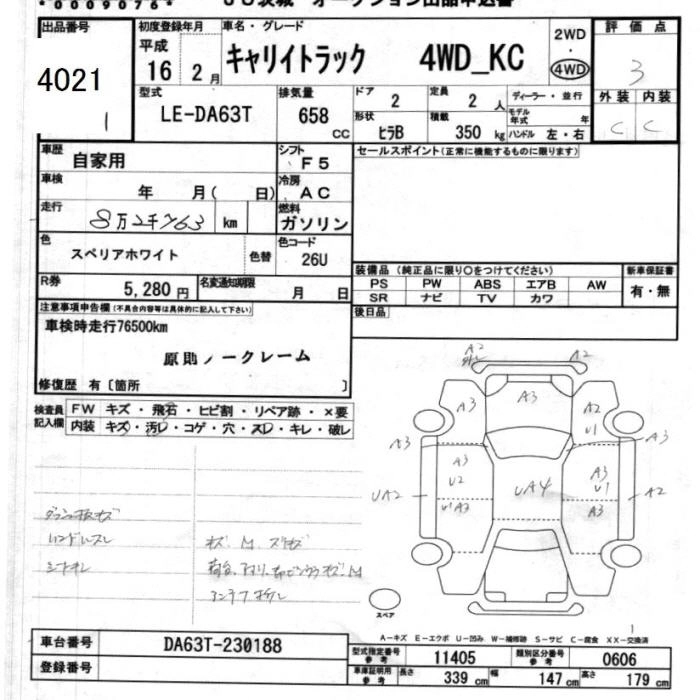 *00090076* JU茨城 オークション出品申込書
出品番号 初度登録年月 車名・グレード 2WD・4WD 評価点
4021 平成 16 2月 キャリイトラック 4WD_KC 3
1 型式 LE-DA63T 排気量 658 CC ドア 2 定員 2 人 ディーラー・並行 外装 内装
形状 ヒラB 積載 350 kg モデル年式 年 ハンドル 左・右 C C
車歴 自家用 シフト F5 セールスポイント(正常に機能するものに限ります)
車検 年 月( 日) 冷房 AC
走行 8万2千763 km 燃料 ガソリン
色 スペリアホワイト 色替 色コード 26U
装備品(純正品に限り○をつけてください) 新車保証書
R券 5,280円 名変通知期限 月 日 PS PW ABS エアB AW 有・無
SR ナビ TV カワ
注意事項申告欄(不具合内容等は具体的に記入して下さい) 後日品
車検時走行76500km
原則ノークレーム
修復歴 有〔箇所 〕
検査員記入欄 FW キズ・飛石・ヒビ割・リペア跡・×要
内装 キズ・汚レ・コゲ・穴・スレ・キレ・破レ
A2 A2
A3 A3 A2
U1
A3 A3
A3 A3
UA2 U2 UA4 U1 A2
U1 A2 A3
ハンドルスレ
シートキレ
スペア
A-キズ E-エクボ U-凹み W-補修跡 S-サビ C-腐食 XX-交換済
1
車台番号 DA63T-230188 型式指定番号 参考 11405 類別区分番号 参考 0606
登録番号 車庫証明用 参考 長さ 339 cm 幅 147 cm 高さ 179 cm